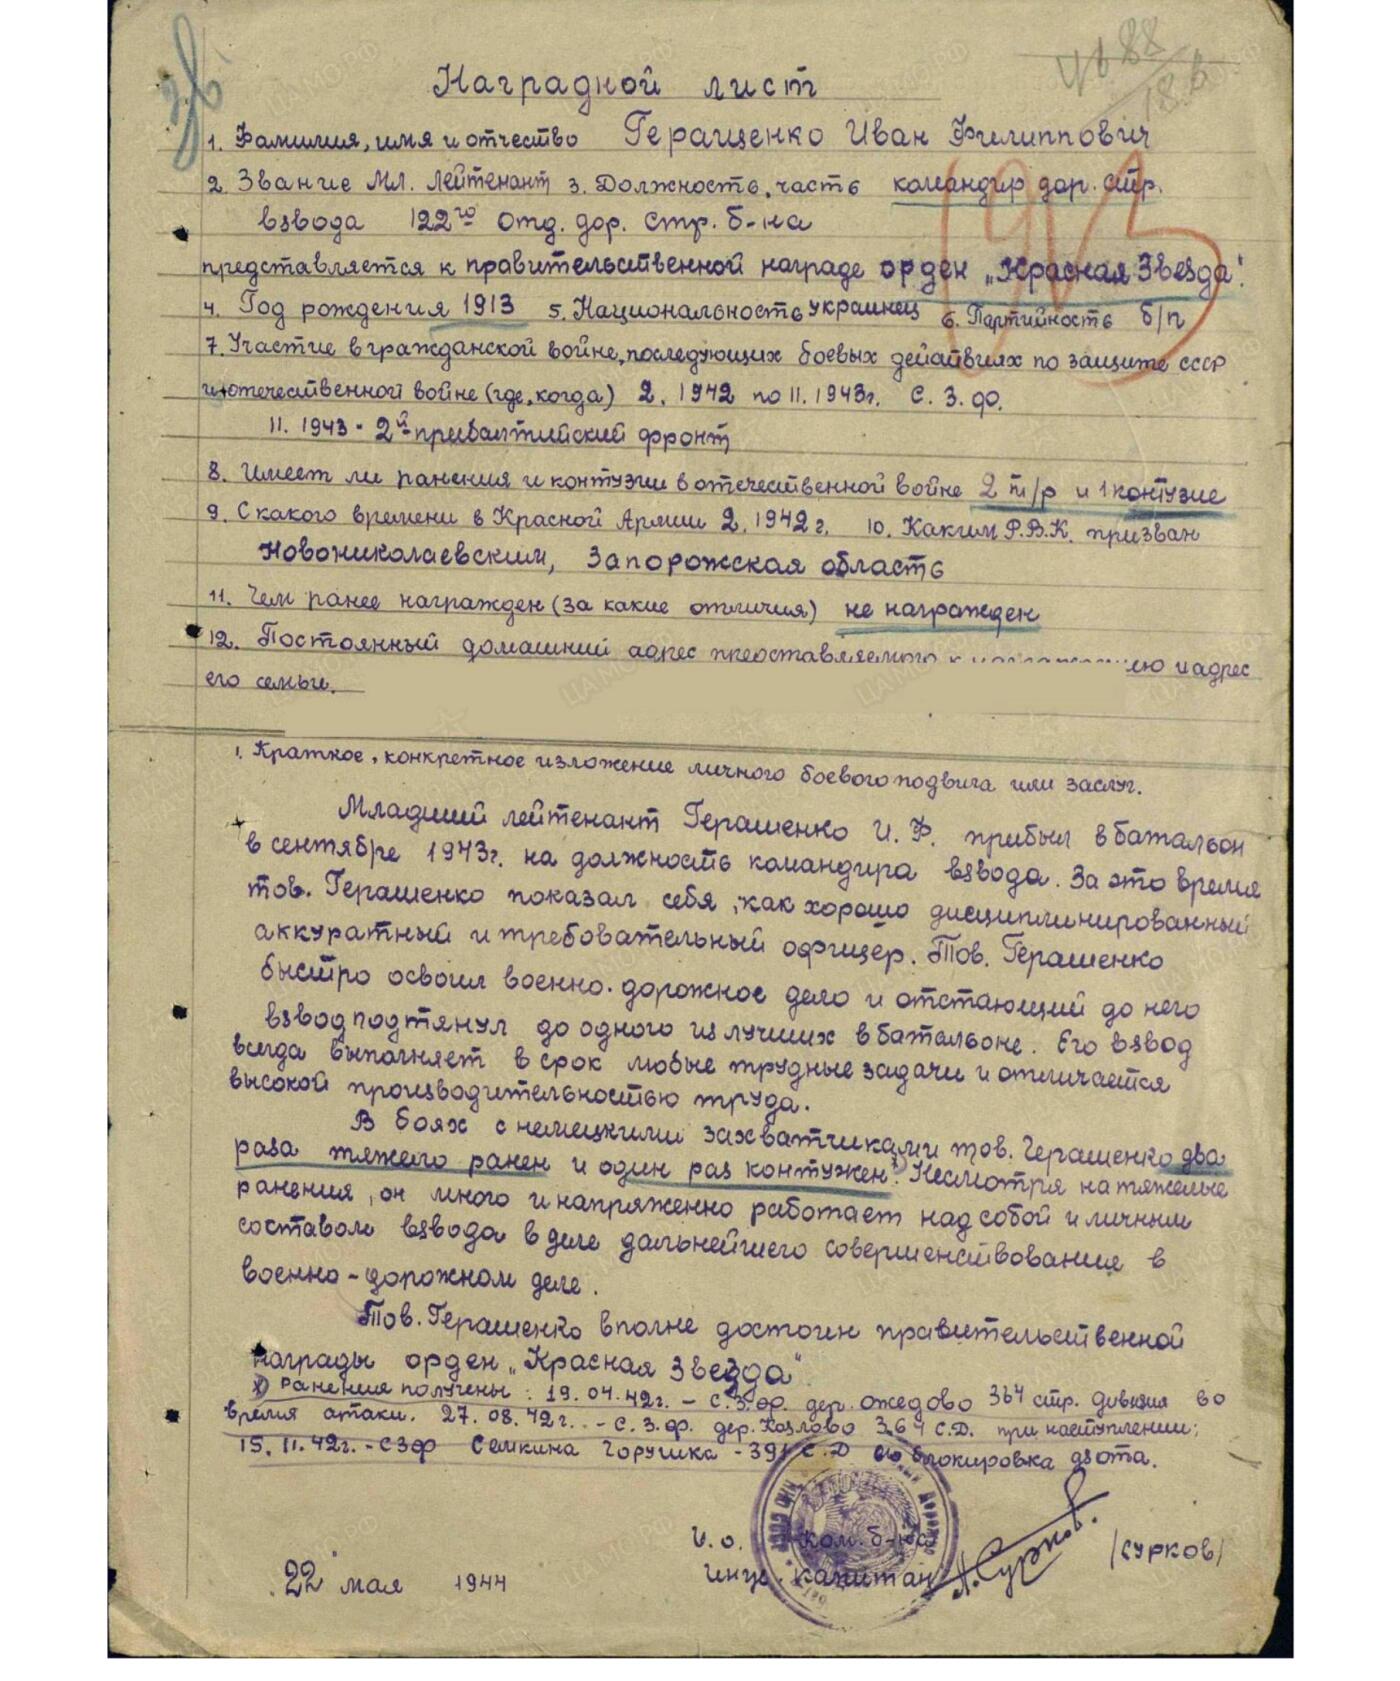 4688
18.6
Наградной лист
1. Фамилия, имя и отчество Геращенко Иван Филиппович
2. Звание Мл. лейтенант 3. Должность, часть командир дор. стр.
взвода 122го отд. дор. стр. б-на
представляется к правительственной награде орден „Красная Звезда“.
4. Год рождения 1913 5. Национальность украинец 6. Партийность б/п
7. Участие в гражданской войне, последующих боевых действиях по защите СССР
и отечественной войне (где, когда) 2. 1942 по 11. 1943г. С. З. ф.
11. 1943 - 2й прибалтийский фронт
8. Имеет ли ранения и контузии в отечественной войне 2 т/р и 1 контузие
9. С какого времени в Красной Армии 2. 1942 г. 10. Каким Р.В.К. призван
Новониколаевским, Запорожская область
11. Чем ранее награжден (за какие отличия) не награжден
12. Постоянный домашний адрес представляемого к и адрес
его семьи.
1. Краткое, конкретное изложение личного боевого подвига или заслуг.
Младший лейтенант Геращенко И. Ф. прибыл в батальон
в сентябре 1943г. на должность командира взвода. За это время
тов. Геращенко показал себя, как хорошо дисциплинированный
аккуратный и требовательный офицер. Тов. Геращенко
быстро освоил военно-дорожное дело и отстающий до него
взвод подтянул до одного из лучших в батальоне. Его взвод
всегда выполняет в срок любые трудные задачи и отличается
высокой производительностью труда.
В боях с немецкими захватчиками тов. Геращенко два
раза тяжело ранен и один раз контужен. Несмотря на тяжелые
ранения, он много и напряженно работает над собой и личным
составом взвода в деле дальнейшего совершенствования в
военно-дорожном деле.
Тов. Геращенко вполне достоин правительственной
награды орден „Красная Звезда“
х) Ранения получены: 19.04.42г. - С.З.ф. дер. Ожедово 364 стр. дивизия во
время атаки. 27.08.42г. - С.З.ф. дер. Козлово 364 С.Д. при наступлении;
15.11.42г. - СЗФ Семкина Горушка - 391 С.Д блокировка дзота.
И.о. Ком. б-на
Инж. капитан А. Сурков. /Сурков/
22 мая 1944